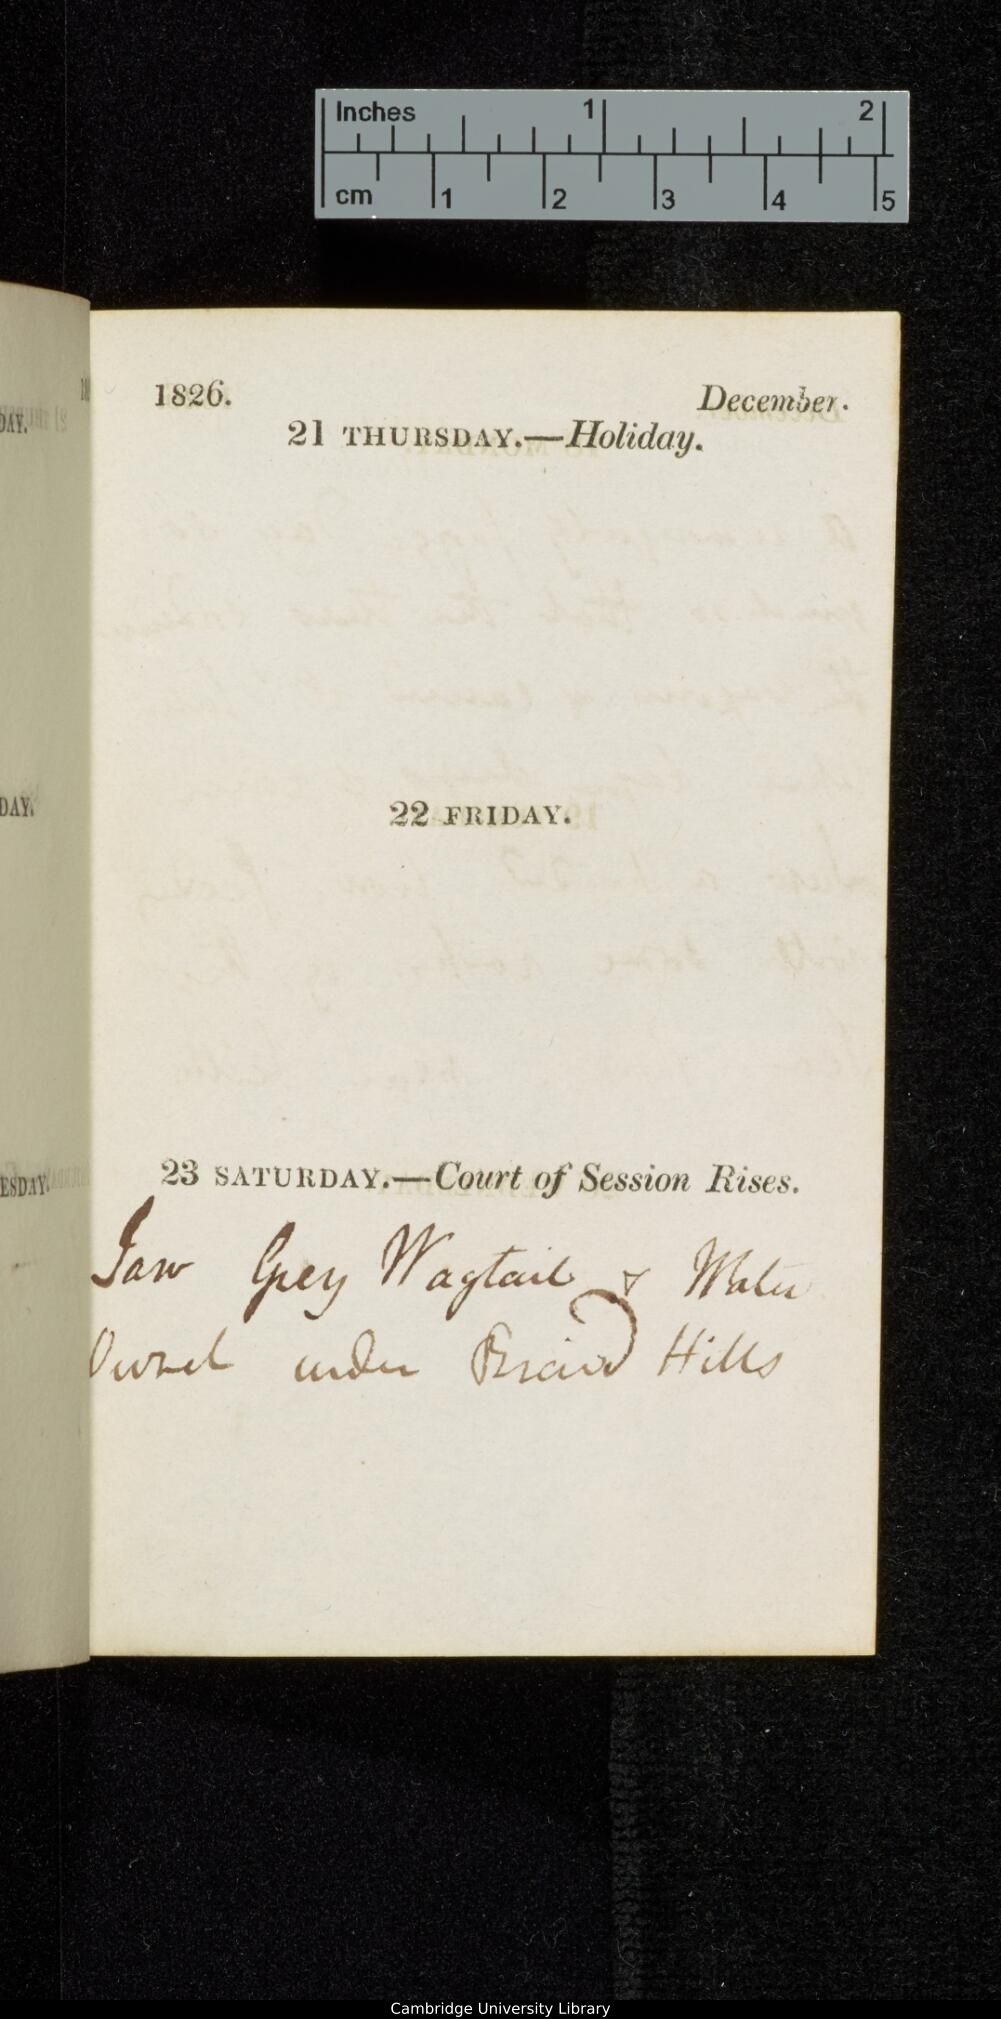 Inches 1 2
cm 1 2 3 4 5
DAY.
DAY.
ESDAY.
1826. December.
21 THURSDAY.—Holiday.
22 FRIDAY.
23 SATURDAY.—Court of Session Rises.
Saw Grey Wagtail & Water
Ouzel under Braid Hills
Cambridge University Library